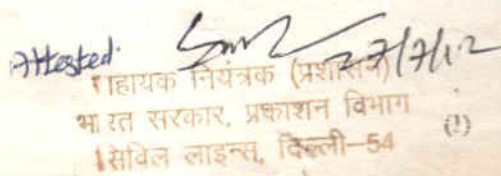 Attested. 27/7/12
सहायक नियंत्रक (प्रशासन)
भारत सरकार, प्रकाशन विभाग
सिविल लाइन्स, दिल्ली-54 (1)